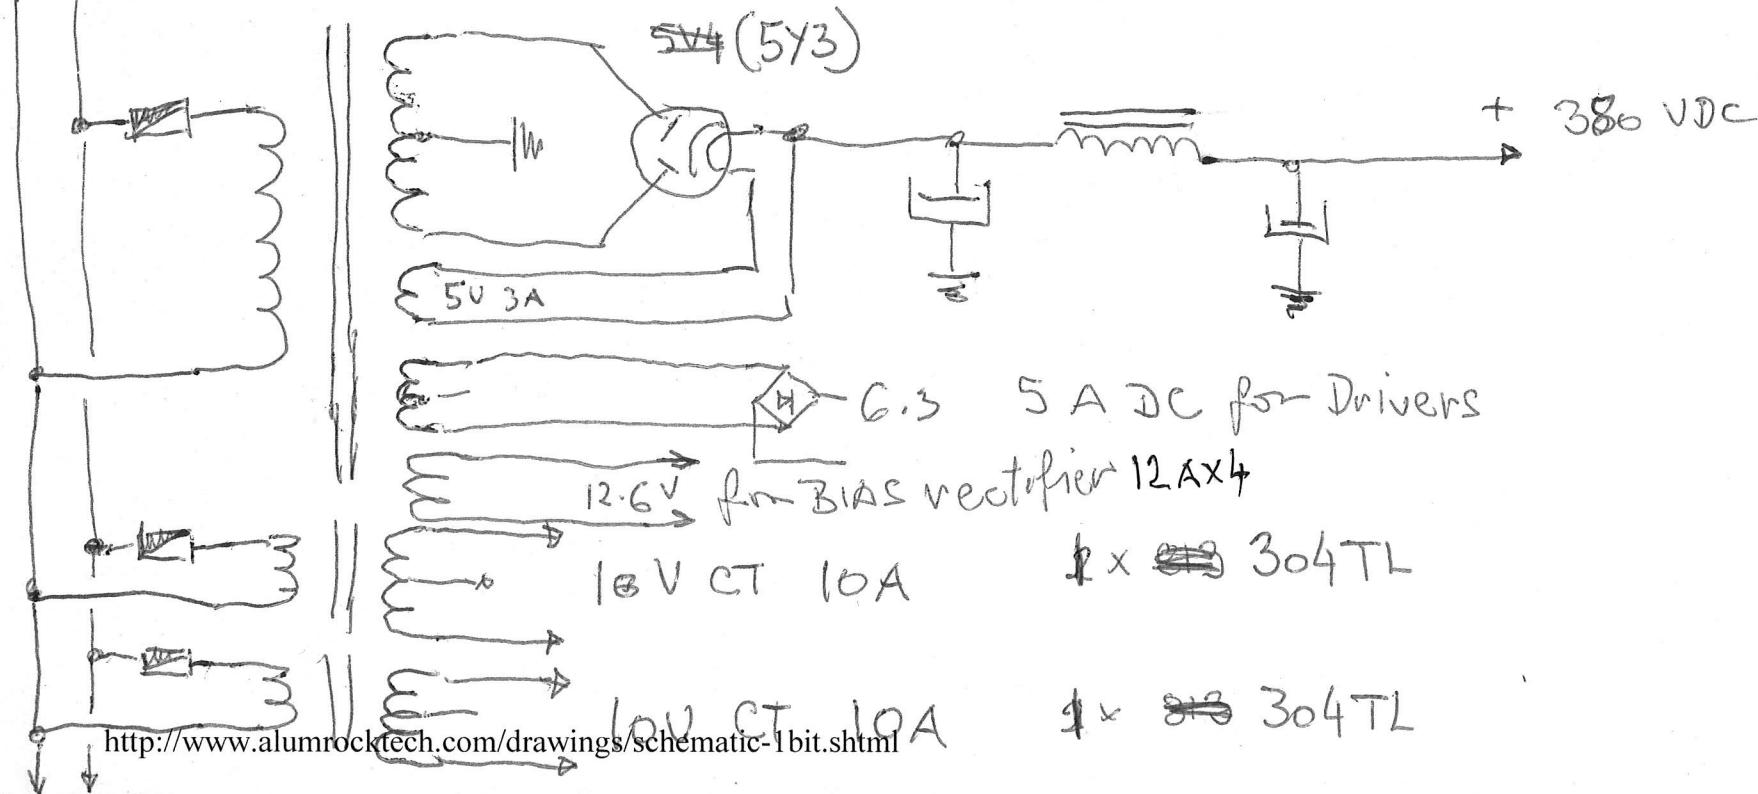 5V4 (5Y3)
+ 380 VDC
5V 3A
6.3 5 A DC for Drivers
12.6V for BIAS rectifier 12AX4
10V CT 10A 1 x 813 304TL
10V CT 10A 1 x 813 304TL
http://www.alumrocktech.com/drawings/schematic-1bit.shtml